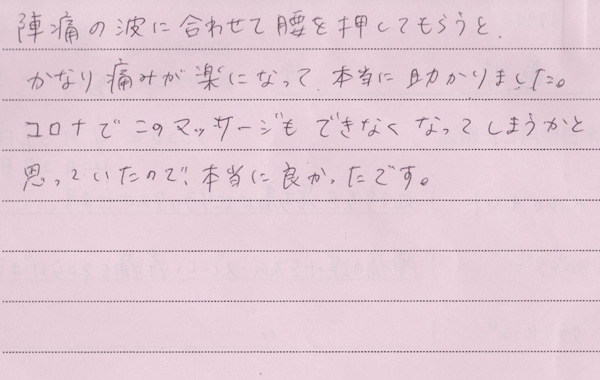 陣痛の波に合わせて腰を押してもらうと、
かなり痛みが楽になって、本当に助かりました。
コロナでこのマッサージもできなくなってしまうかと
思っていたので、本当に良かったです。